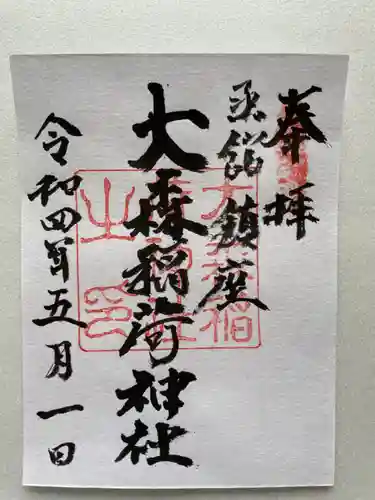 奉拝
函館鎮座
大森稲荷神社
令和四年五月一日